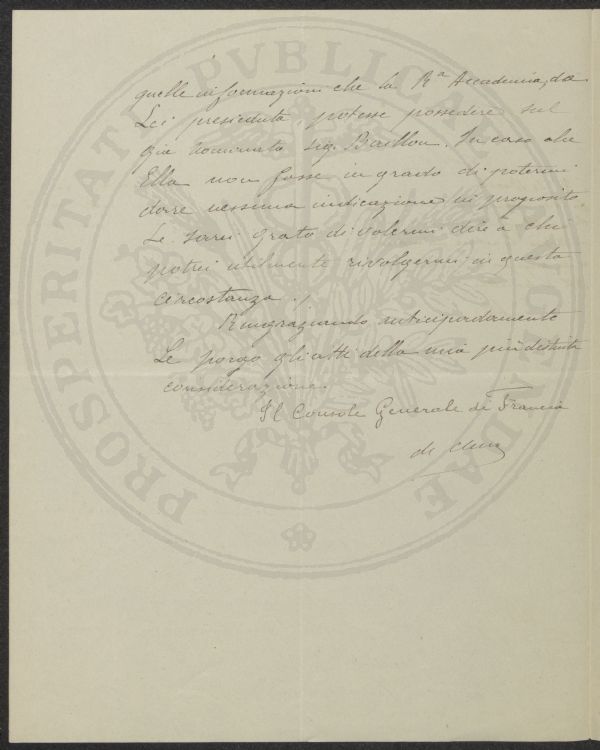 quelle informazioni che la Rª Accademia, da
Lei presieduta, potesse possedere sul
già nominato sig. Baillou. In caso che
Ella non fosse in grado di potermi
dare nessuna indicazione in proposito
Le sarei grato di volermi dire a chi
potrei utilmente rivolgermi in questa
circostanza.
Ringraziando anticipatamente
Le porgo gli atti della mia più distinta
considerazione.
Il Console Generale di Francia
de
PROSPERITATI PVBLICAE AVGENDAE